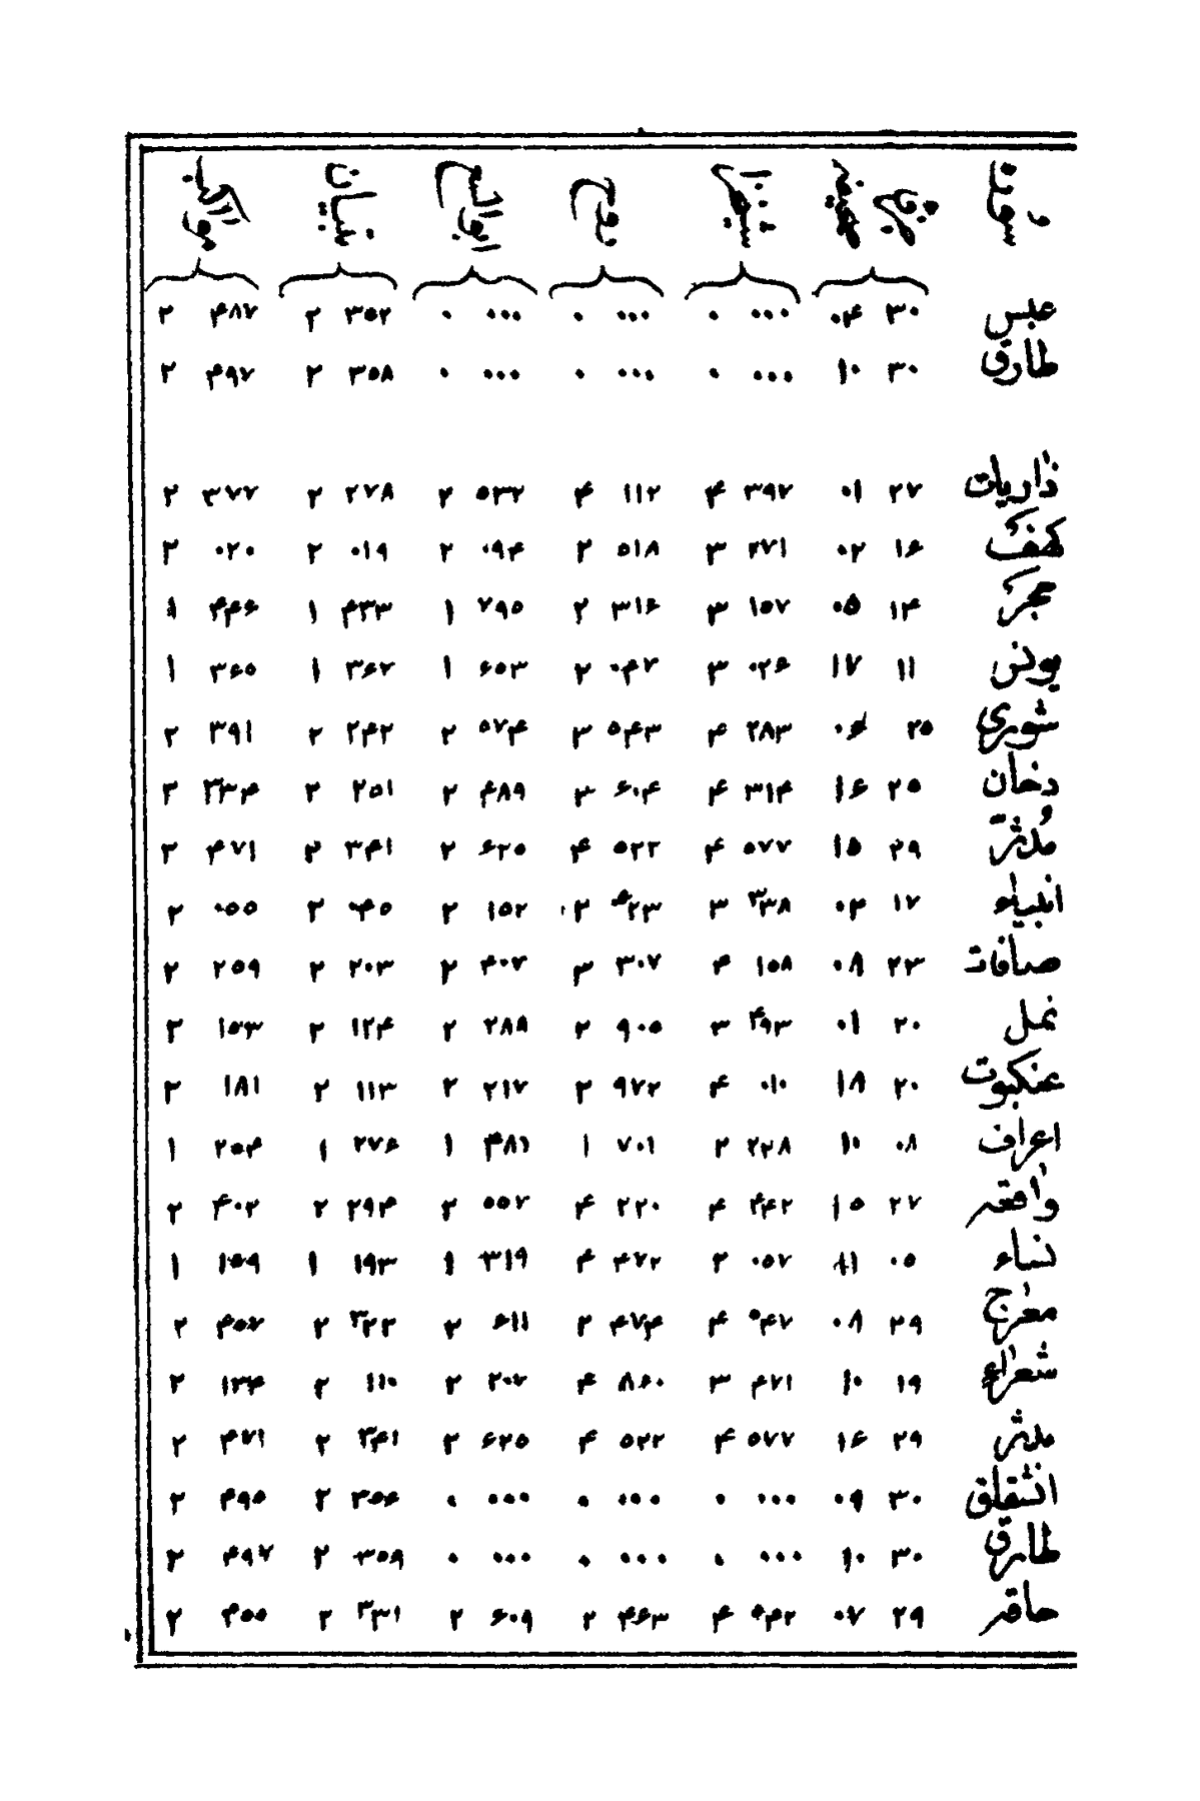 سورة جزؤ صحیفه شیخ زاده روح ابوالسع تبیان مواکب
عبس ۳۰ ۰۴ ۰۰۰ ۰ ۰۰۰ ۰ ۰۰۰ ۰ ۳۵۲ ۲ ۴۸۷ ۲
طارق ۳۰ ۱۰ ۰۰۰ ۰ ۰۰۰ ۰ ۰۰۰ ۰ ۳۵۸ ۲ ۴۹۷ ۲
ذاریات ۲۷ ۰۱ ۳۹۷ ۴ ۱۱۲ ۴ ۵۳۲ ۲ ۲۷۸ ۲ ۳۷۷ ۲
كهف ۱۶ ۰۲ ۲۷۱ ۳ ۵۱۸ ۲ ۰۹۴ ۲ ۰۱۹ ۲ ۰۲۰ ۲
حجر ۱۴ ۰۵ ۱۵۷ ۳ ۳۱۶ ۲ ۷۹۵ ۱ ۴۳۳ ۱ ۴۴۶ ۱
یونس ۱۱ ۱۷ ۰۲۶ ۳ ۰۴۷ ۲ ۶۵۳ ۱ ۳۶۲ ۱ ۳۶۵ ۱
شوری ۲۵ ۰۶ ۲۸۳ ۴ ۵۴۳ ۳ ۵۷۴ ۲ ۲۴۲ ۲ ۳۹۱ ۲
دخان ۲۵ ۱۶ ۳۱۴ ۴ ۶۰۴ ۳ ۴۸۹ ۲ ۲۵۱ ۲ ۳۳۴ ۲
مدثر ۲۹ ۱۵ ۵۷۷ ۴ ۵۲۲ ۴ ۶۲۵ ۲ ۳۴۱ ۲ ۴۷۱ ۲
انبیاء ۱۷ ۰۲ ۳۳۸ ۳ ۶۲۳ ۲ ۱۵۲ ۲ ۰۴۵ ۲ ۰۵۵ ۲
صافات ۲۳ ۰۸ ۱۵۸ ۴ ۳۰۷ ۳ ۴۰۷ ۲ ۲۰۳ ۲ ۲۵۹ ۲
نمل ۲۰ ۰۱ ۴۹۳ ۳ ۹۰۵ ۲ ۲۸۸ ۲ ۱۲۴ ۲ ۱۵۳ ۲
عنكبوت ۲۰ ۱۸ ۰۱۰ ۴ ۹۷۲ ۲ ۲۱۷ ۲ ۱۱۳ ۲ ۱۸۱ ۲
اعراف ۰۸ ۱۰ ۲۲۸ ۲ ۷۰۱ ۱ ۴۸۱ ۱ ۲۷۶ ۱ ۲۵۴ ۱
واقعه ۲۷ ۱۵ ۴۴۲ ۴ ۲۲۰ ۴ ۵۵۷ ۲ ۲۹۴ ۲ ۴۰۲ ۲
نساء ۰۵ ۱۱ ۰۵۷ ۲ ۴۷۲ ۴ ۳۱۹ ۱ ۱۹۳ ۱ ۱۵۹ ۱
معراج ۲۹ ۰۸ ۵۴۷ ۴ ۴۷۴ ۲ ۶۱۱ ۲ ۳۲۲ ۲ ۴۵۷ ۲
شعراء ۱۹ ۱۰ ۴۷۱ ۳ ۸۶۰ ۴ ۲۰۷ ۲ ۱۱۰ ۲ ۱۳۴ ۲
مدثر ۲۹ ۱۶ ۵۷۷ ۴ ۵۲۲ ۴ ۶۲۵ ۲ ۳۴۱ ۲ ۴۷۱ ۲
انشقاق ۳۰ ۰۹ ۰۰۰ ۰ ۰۰۰ ۰ ۰۰۰ ۰ ۳۵۶ ۲ ۴۹۵ ۲
طارق ۳۰ ۱۰ ۰۰۰ ۰ ۰۰۰ ۰ ۰۰۰ ۰ ۳۵۹ ۲ ۴۹۷ ۲
حاقه ۲۹ ۰۷ ۵۴۲ ۴ ۴۶۳ ۲ ۶۰۹ ۲ ۳۳۱ ۲ ۴۵۵ ۲